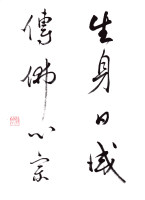 生身日域
傳佛心宗